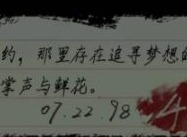 约，那里存在追寻梦想的
掌声与鲜花。
07.22.98